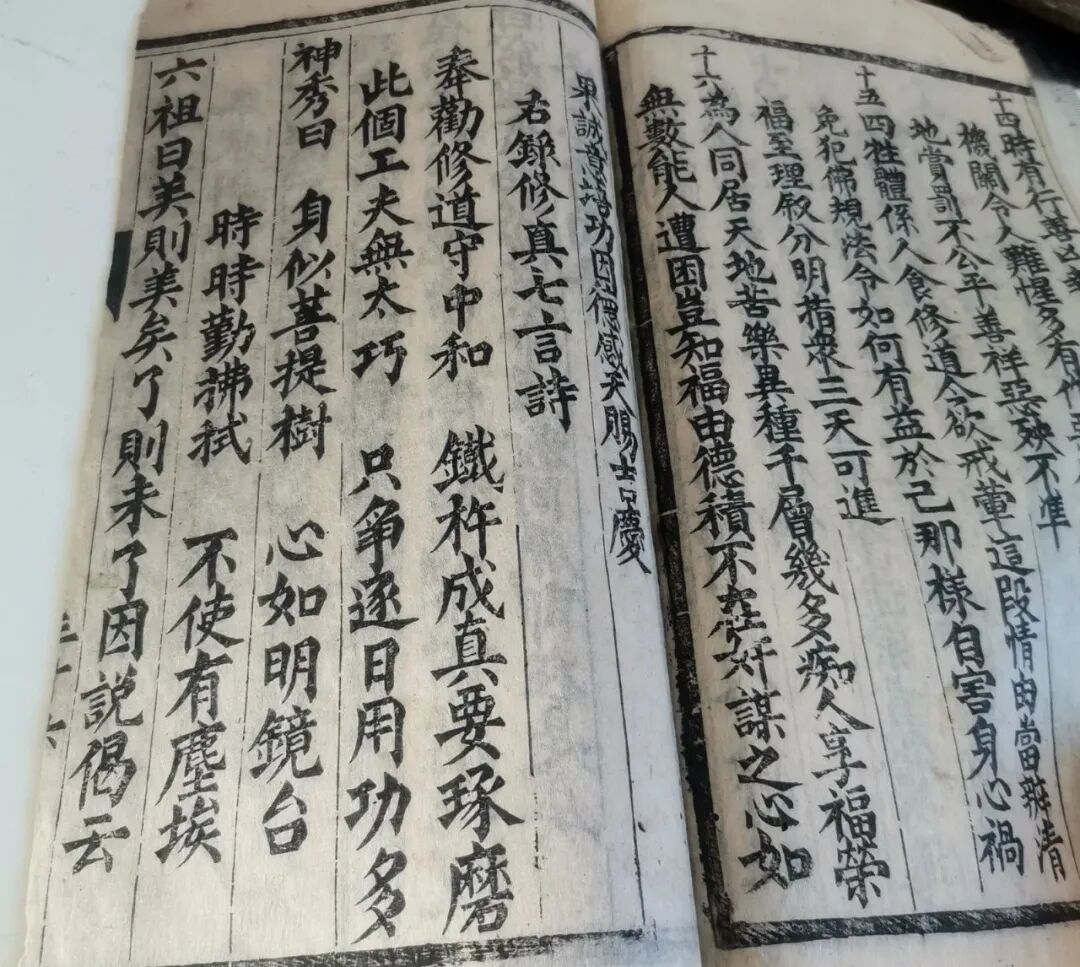 十四時有行善
機關令人難惺多有作惡不準
地當哥不公平善祥惡殃這段情由當辨清
十五四牲體係人食修道今欲戒葷
免犯佛規法令如何有益於己那樣自害身心禍
福至理叙分明指衆三天可進
十六為人同居天地苦樂異種千層幾多痴人享福榮
無數能人遭困豈知福由德積不在奸謀之心如
果誠首培功因德感天賜吉慶
右錄修真七言詩
奉勸修道守中和 鐵杵成真要琢磨
此個工夫無太巧 只爭逐日用功多
神秀曰 身似菩提樹 心如明鏡台
時時勤拂拭 不使有塵埃
六祖曰美則美矣了則未了因説偈云